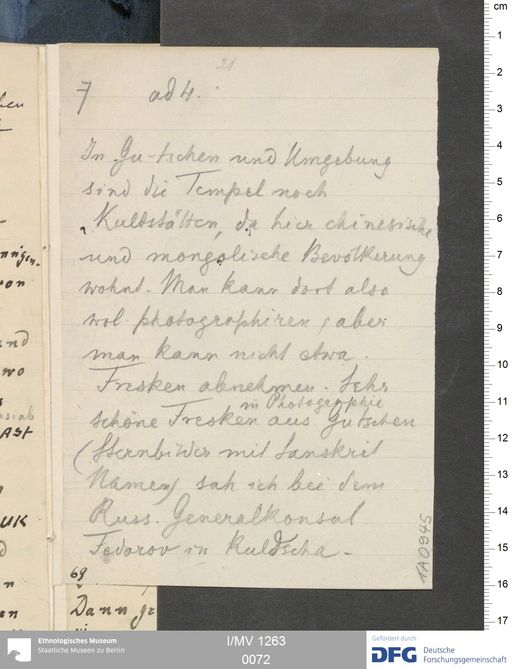 21
7 ad 4.
In Gu-tschen und Umgebung
sind die Tempel noch
Kultstätten, da hier chinesische
und mongolische Bevölkerung
wohnt. Man kann dort also
wol photographiren, aber
man kann nicht etwa
Fresken abnehmen. Sehr
in Photographie
schöne Fresken aus Gutschen
(Sternbilder mit Sanskrit
Namen) sah ich bei dem
Russ. Generalkonsul
Fedorov in Kuldscha.
69
Dann
1A0945
cm
1
2
3
4
5
6
7
8
9
10
11
12
13
14
15
16
17
Ethnologisches Museum
Staatliche Museen zu Berlin
I/MV 1263
0072
Gefördert durch
DFG Deutsche
Forschungsgemeinschaft